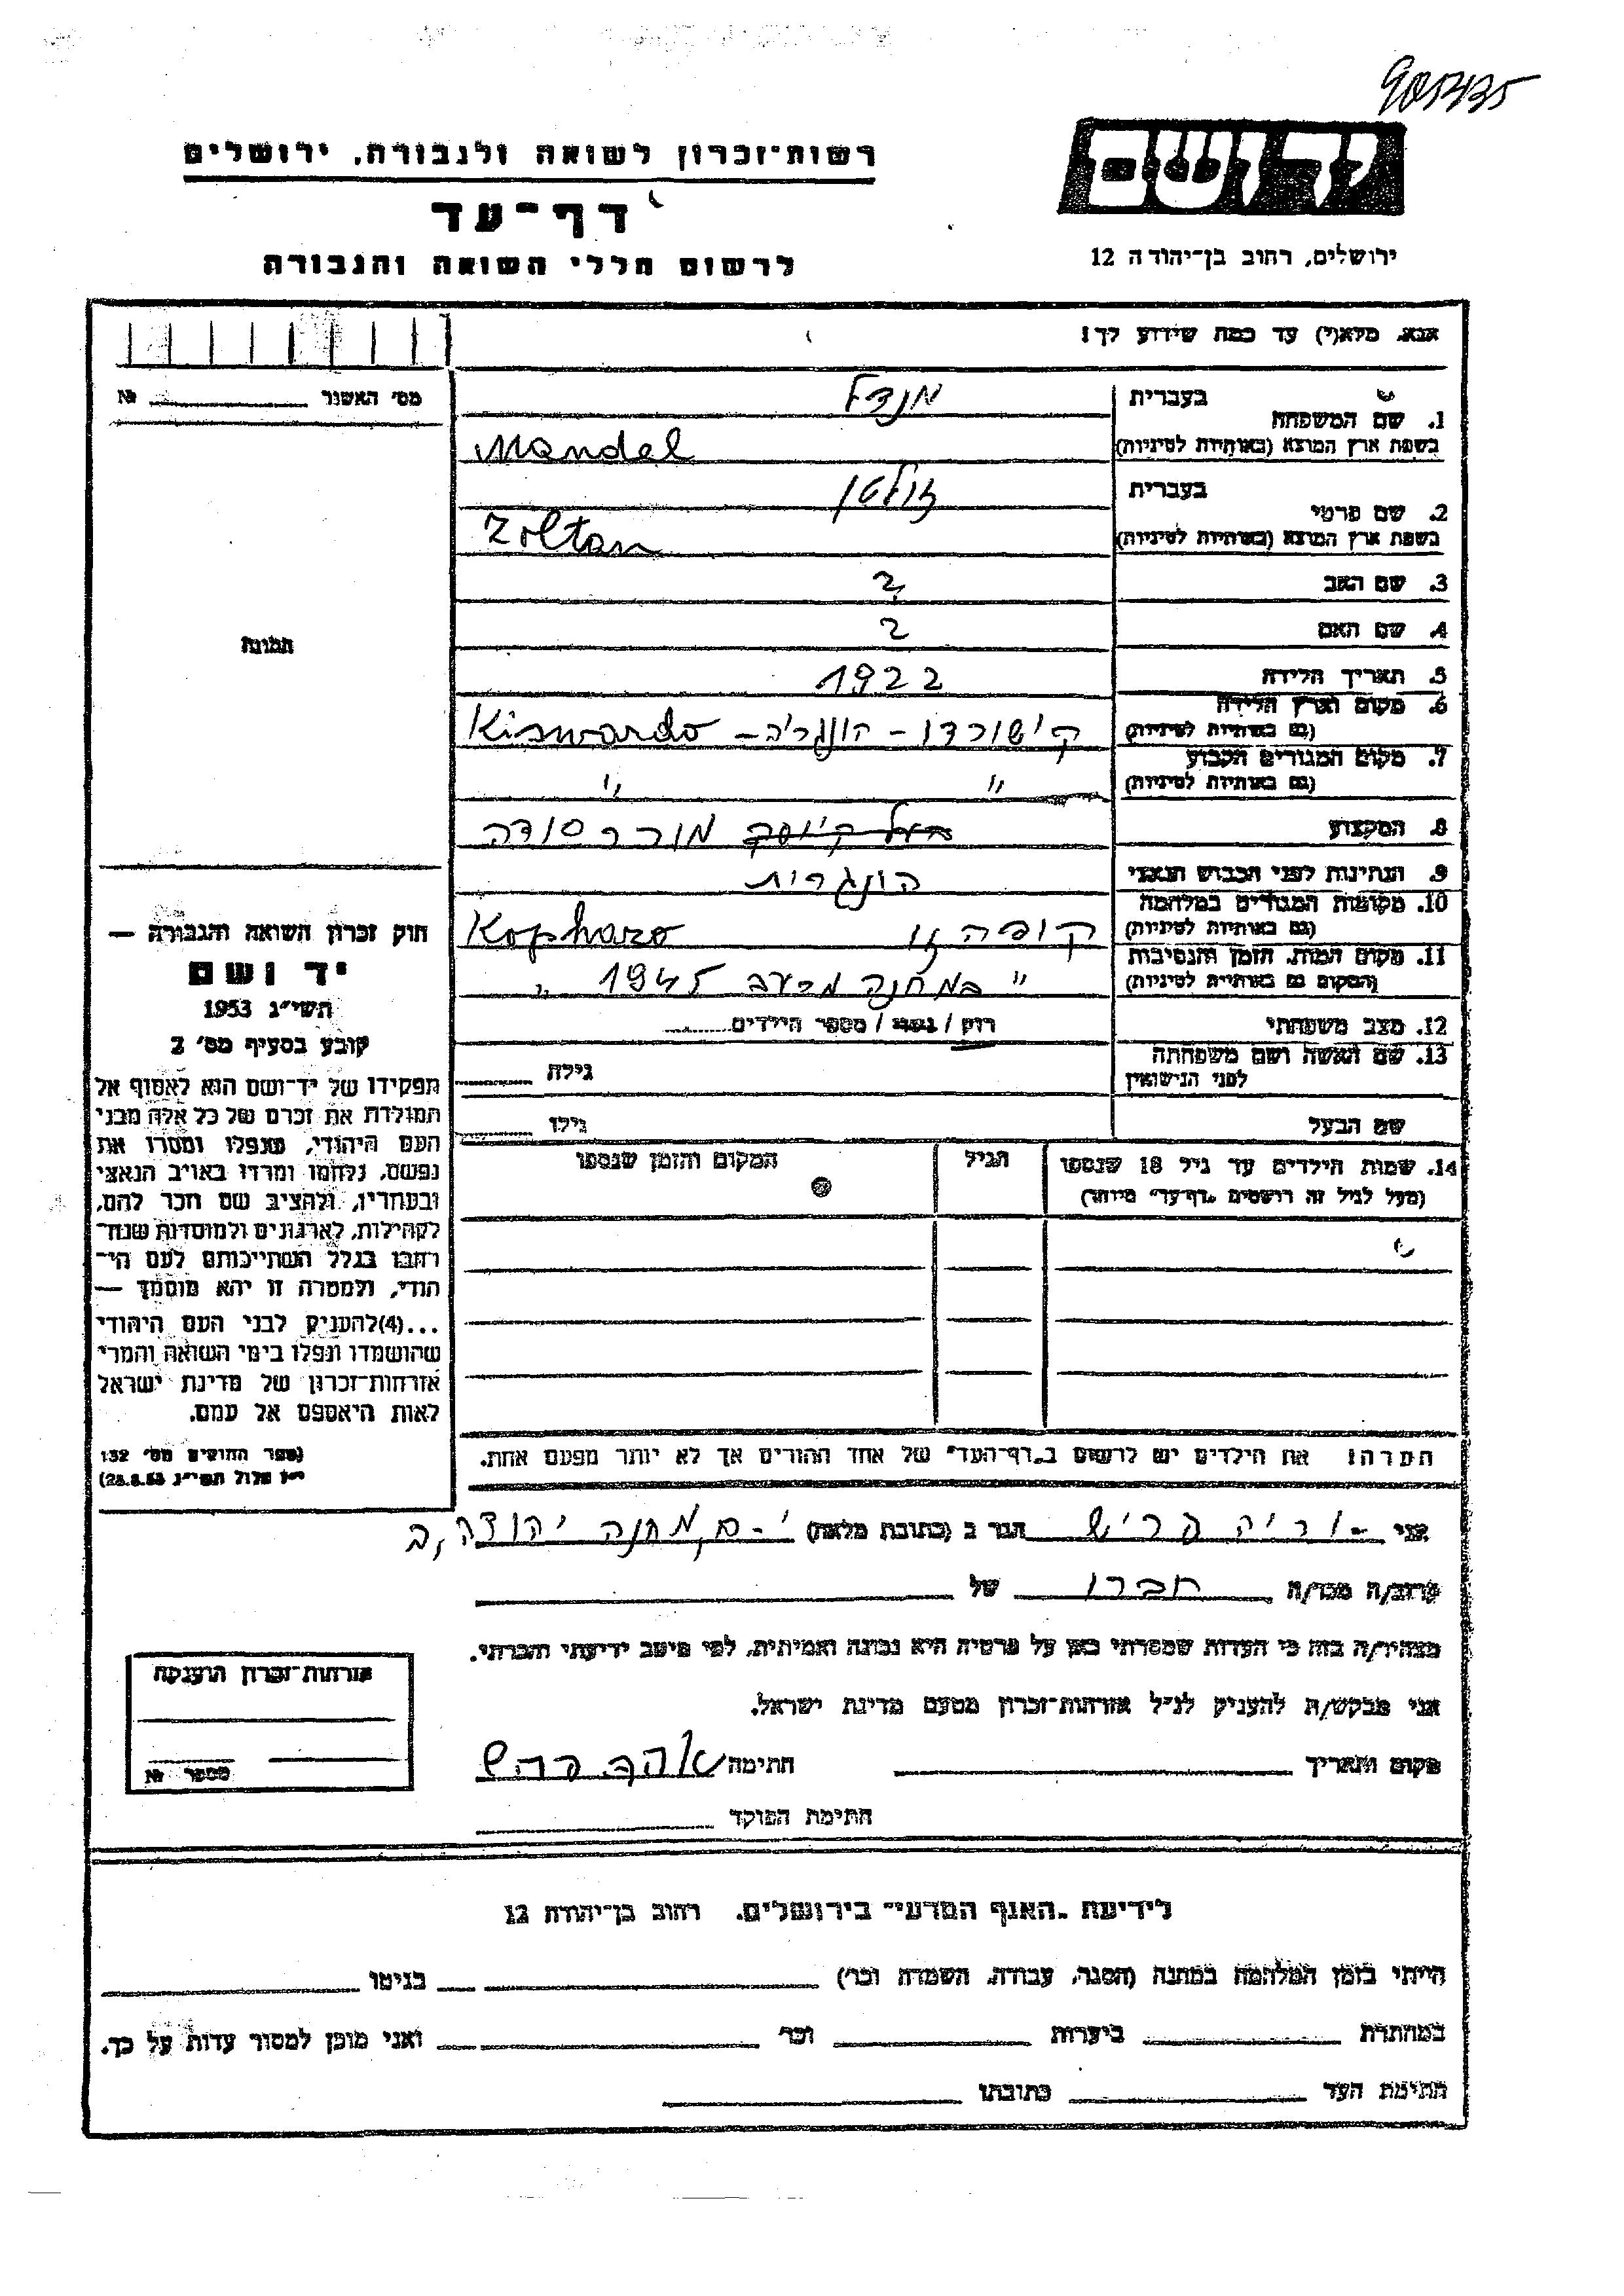 רשות-זכרון לשואה ולגבורה, ירושלים
דף-עד
לרשום חללי השואה והגבורה
ידושם
ירושלים, רחוב בן-יהודה 12
אנא, מלא(י) עד כמה שידוע לך!
מס' האשור № 
1. שם המשפחה
בעברית
מנדל
בשפת ארץ המוצא (באותיות לטיניות)
Mandel
2. שם פרטי
בעברית
זולטן
בשפת ארץ המוצא (באותיות לטיניות)
Zoltan
3. שם האב
?
4. שם האם
?
5. תאריך הלידה
1922
6. מקום וארץ הלידה
(גם באותיות לטיניות)
קישורדו - הונגריה - Kiswardo
7. מקום המגורים הקבוע
(גם באותיות לטיניות)
" "
8. המקצוע
מוכר סודה
9. הנתינות לפני הכבוש הנאצי
הונגרית
10. מקומות המגורים במלחמה
(גם באותיות לטיניות)
Kopharo
11. מקום המות, הזמן והנסיבות
(המקום גם באותיות לטיניות)
" במחנה מרעב 1945 "
12. מצב משפחתי
רווק / נשוי / מספר הילדים
13. שם האשה ושם משפחתה
לפני הנישואין
גילה
שם הבעל
גילו
14. שמות הילדים עד גיל 18 שנספו
(מעל לגיל זה רושמים "דף-עד" מיוחד)
הגיל
המקום והזמן שנספו
תמונה
חוק זכרון השואה והגבורה —
יד ושם
תשי"ג 1953
קובע בסעיף מס' 2
תפקידו של יד-ושם הוא לאסוף אל
המולדת את זכרם של כל אלה מבני
העם היהודי, שנפלו ומסרו את
נפשם, נלחמו ומרדו באויב הנאצי
ובעוזריו, ולהציב שם וזכר להם,
לקהילות, לארגונים ולמוסדות שנח-
רבו בגלל השתייכותם לעם הי-
הודי, ולמטרה זו יהא מוסמך —
...(4)להעניק לבני העם היהודי
שהושמדו ונפלו בימי השואה והמרי
אזרחות-זכרון של מדינת ישראל
לאות היאספם אל עמם.
(ספר החוקים מס' 132
י"ז אלול תשי"ג 28.8.53)
הערה! את הילדים יש לרשום ב"דף-העד" של אחד ההורים אך לא יותר מפעם אחת.
אני הגר ב (כתובת מלאה) י-ם, מחנה יהודה, ב
קרוב/ה מכר/ה חברו של
מצהיר/ה בזה כי העדות שמסרתי כאן על פרטיה היא נכונה ואמיתית, לפי מיטב ידיעתי והכרתי.
אני מבקש/ת להעניק לנ"ל אזרחות-זכרון מטעם מדינת ישראל.
מקום ותאריך חתימה
חתימת הפוקד
אזרחות-זכרון הוענקה
מספר №
לידיעת "האגף המדעי" בירושלים, רחוב בן-יהודה 12
הייתי בזמן המלחמה במחנה (הסגר, עבודה, השמדה וכו') בגיטו
במחתרת ביערות וכו' ואני מוכן למסור עדות על כך.
חתימת העד כתובתו